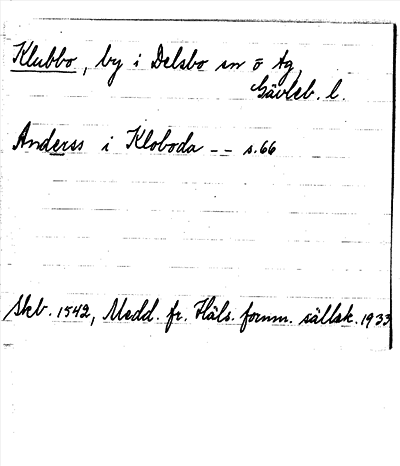 Klubbo, by i Delsbo sn o tg,
Gävleb. l.
Anderss i Kloboda -- s.66
Skb. 1542, Medd. fr. Häls. fornm. sällsk. 1933